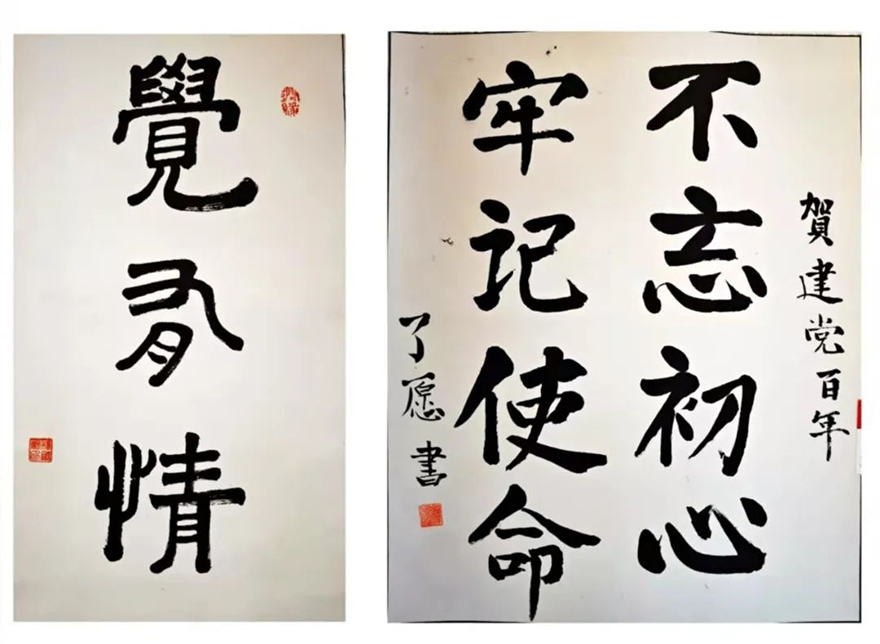 覺有情
賀建党百年
不忘初心
牢记使命
了愿書